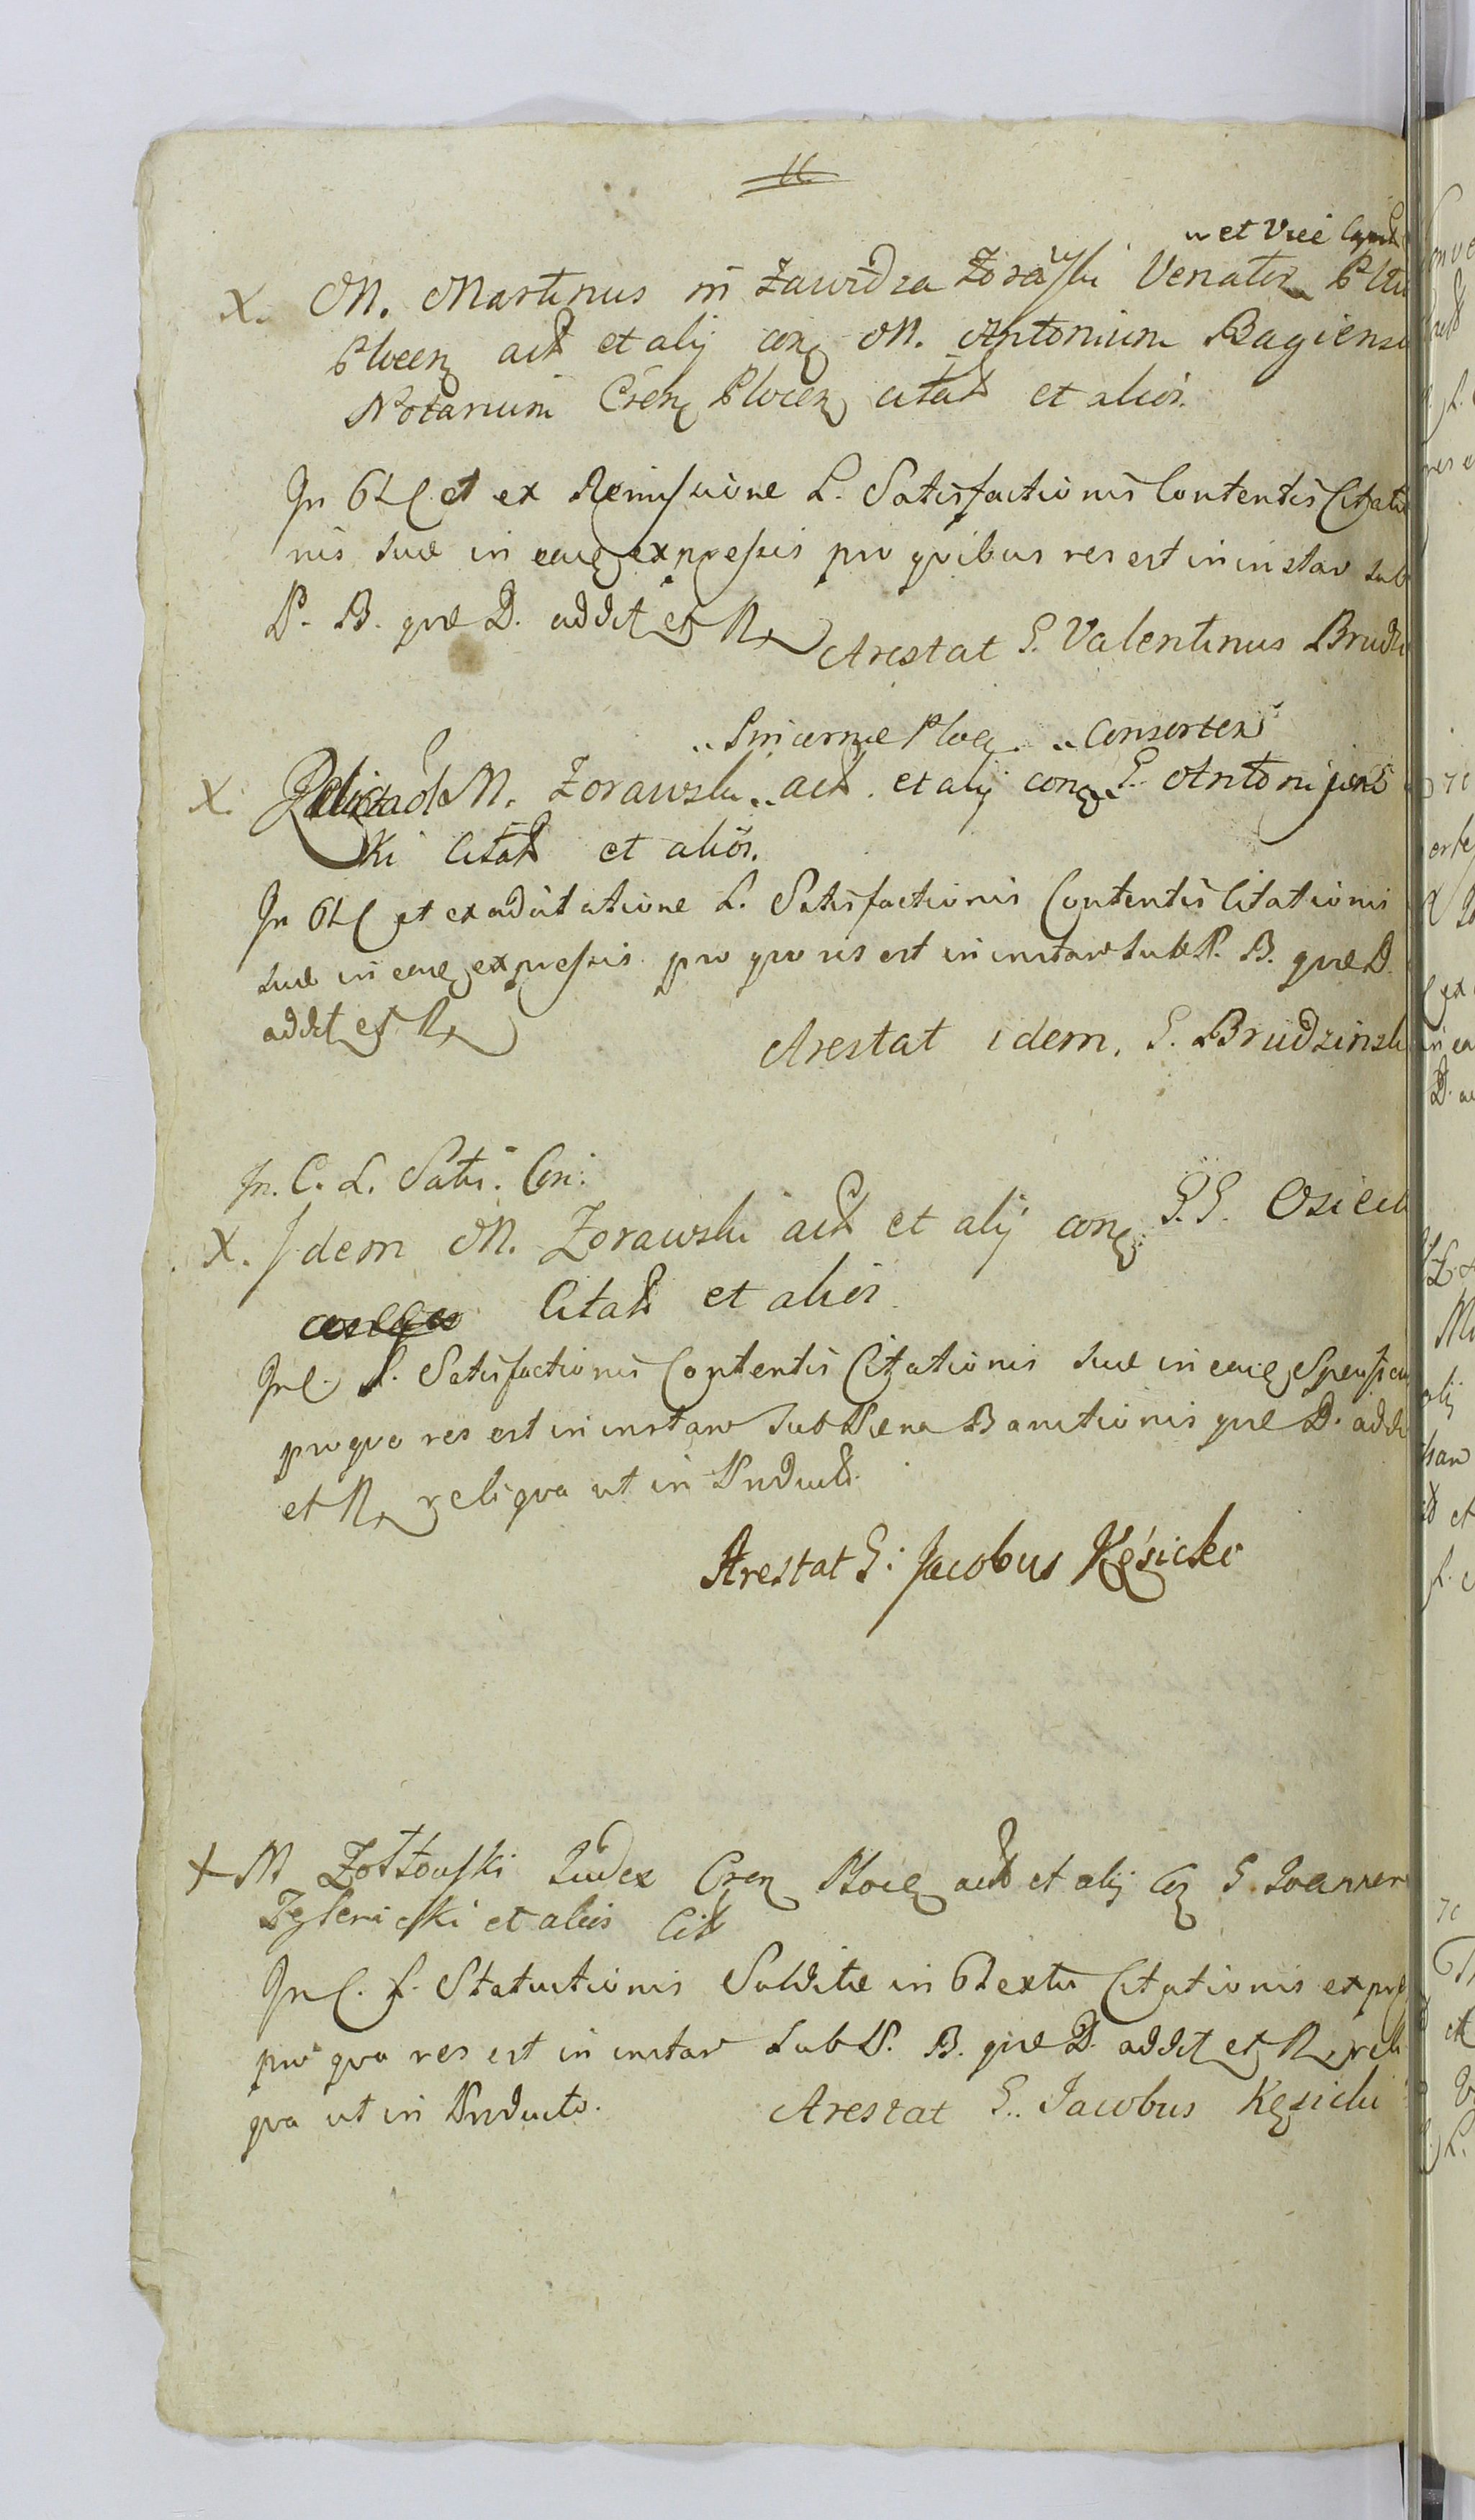 et Vice
X. M. Martinus in Zawidza Zorawski Venator
Plocen act et alij con M. Antonium Bagiens
Notarium Cren Plocen citat et alios.
In et ex Remissione L. Satisfactionis Contentis Citatio
nis suæ in eaq expressis pro quibus res est in instar sub
P. B. quæ D. addit et R
Arestat G. Valentinus Brudzi
Pincernæ Ploc. Consortem
X. M. Zorawski act. et alij con G. Antoni
ki Citat et alios.
In et ex adcitatione L. Satisfactionis Contentis Citationis
suæ in eaq expressis pro quo res est in instar sub P. B. quæ D.
addit et R
Arestat idem. G. Brudzinski
In. C. L. Satis. Con:
X. Idem M. Zorawski act et alij con G.G. Osieck
Citat et alios
In C. L. Satisfactionis Contentis Citationis suæ in eaq
pro quo res est in instar sub Pæna Banitionis quæ D. addi
et R reliqua ut in Induct.
Arestat G: Jacobus Kęsicki
X M Zołtowski Judex Cren Ploc act et alij Con G Joannem
et alios Cit
In C. L. Statuitionis Subditæ in Citationis expres
pro qua res est in instar sub P. B. quæ D. addit et R reli
qua ut in Inducto.
Arestat G. Jacobus Kęsicki